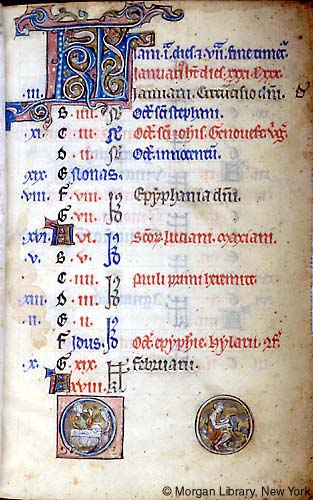 KL
Jani. i. dies. & vii. fine timet.
Januari' ht dies. xxxi. & xxx.
.iii. Januarii. Circucisio dni.
B .iiii. N Oct. sci stephani.
.xi. C .iii. N Oct. sci iohis. Genouefe v'g.
D .ii. N Oct. innocentu.
.xix. E Nonas.
.viii. F .viii. Id Epyphania dni.
G .vii. Id
.xvi. A .vi. Id Scor. luciani. maxiani.
.v. B .v. Id
C .iiii. Id Pauli primi heremite.
.xiii. D .iii. Id
.ii. E .ii. Id
F Idus. Oct. epyphie. Hylarii.
.x. G .xix. Kl Februarii.
A .xviii. Kl
© Morgan Library, New York